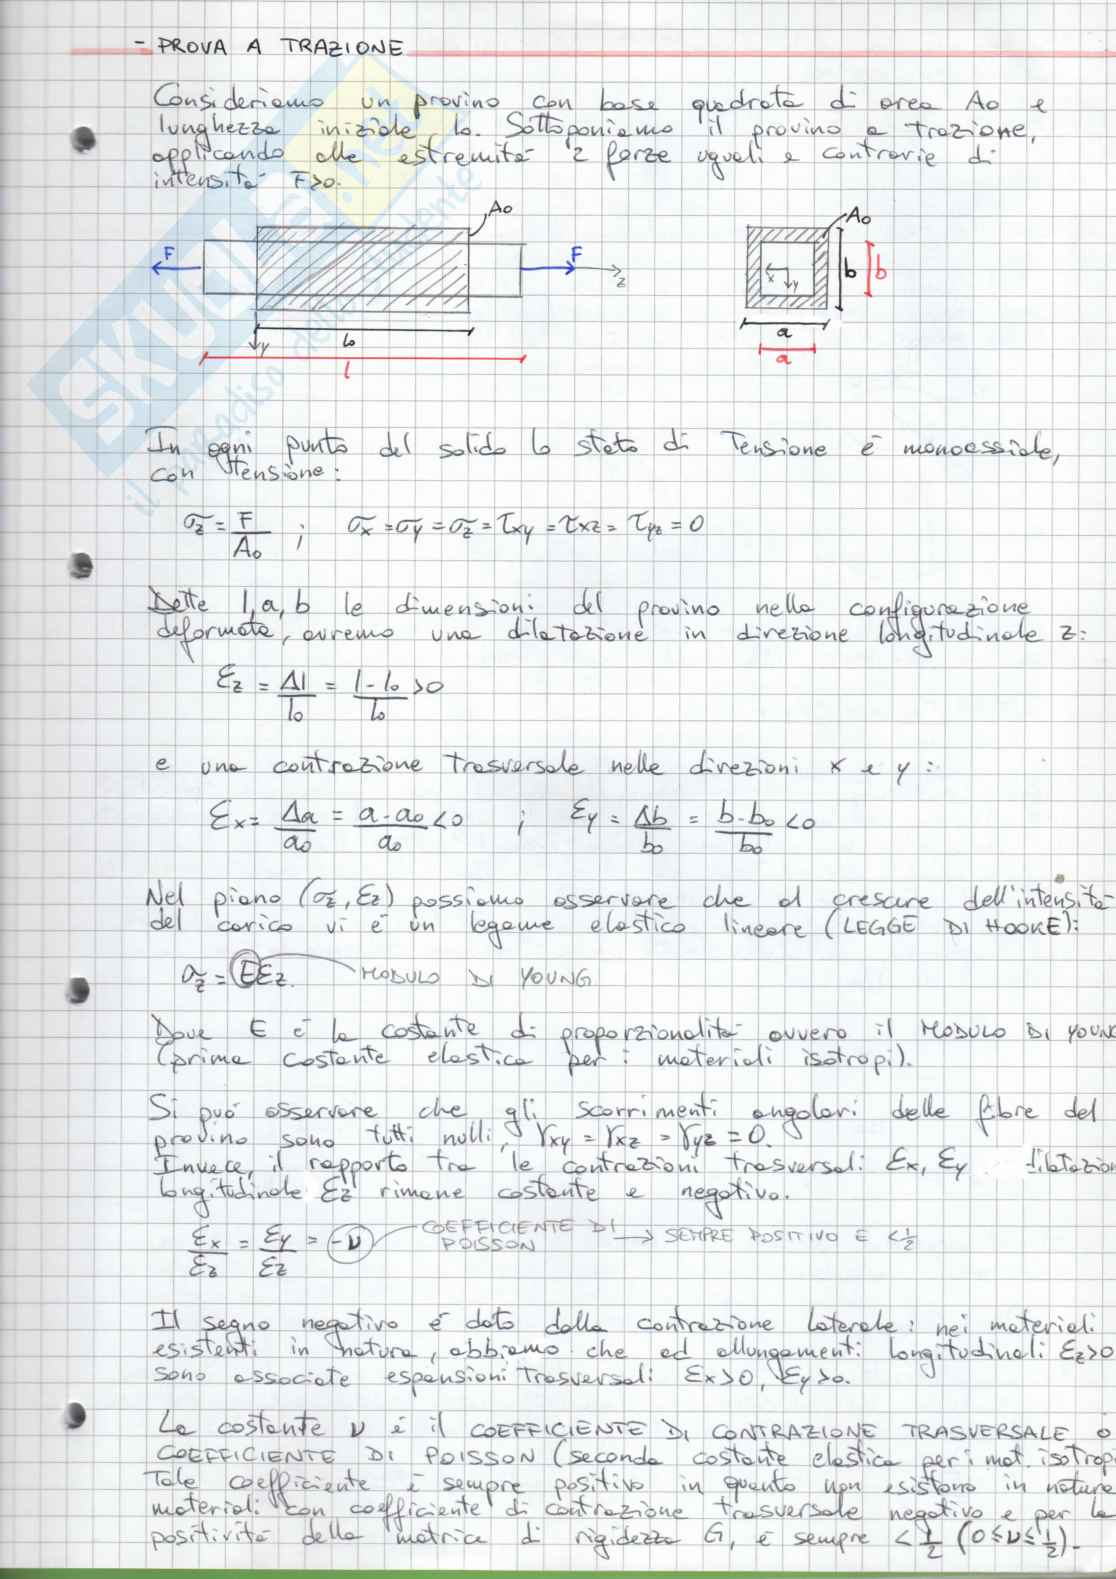 - PROVA A TRAZIONE
Consideriamo un provino con base quadrata di area A₀ e
lunghezza iniziale l₀. Sottoponiamo il provino a trazione,
applicando alle estremità 2 forze uguali e contrarie di
intensità F>0.
A₀
F
F
z
l₀
y
l
A₀
x
y
b
b
a
a
In ogni punto del solido lo stato di Tensione è monoassiale,
con tensione:
σz = F/A₀ ; σx = σy = σz = τxy = τxz = τyz = 0
Dette l, a, b le dimensioni del provino nella configurazione
deformata, avremo una dilatazione in direzione longitudinale z:
εz = Δl/l₀ = l - l₀/l₀ >0
e una contrazione trasversale nelle direzioni x e y :
εx = Δa/a₀ = a - a₀/a₀ <0 ; εy = Δb/b₀ = b - b₀/b₀ <0
Nel piano (σz, εz) possiamo osservare che al crescere dell'intensità
del carico vi è un legame elastico lineare (LEGGE DI HOOKE):
σz = Eεz. MODULO DI YOUNG
Dove E è la costante di proporzionalità ovvero il MODULO DI YOUNG
(prima costante elastica per i materiali isotropi).
Si può osservare che gli scorrimenti angolari delle fibre del
provino sono tutti nulli, γxy = γxz = γyz = 0.
Invece, il rapporto tra le contrazioni trasversali εx, εy dilatazion
longitudinale εz rimane costante e negativo.
εx/εz = εy/εz = -ν COEFFICIENTE DI POISSON → SEMPRE POSITIVO E <1/2
Il segno negativo è dato dalla contrazione laterale: nei materiali
esistenti in natura, abbiamo che ad allungamenti longitudinali εz>0
sono associate espansioni trasversali εx>0, εy>0.
La costante ν è il COEFFICIENTE DI CONTRAZIONE TRASVERSALE O
COEFFICIENTE DI POISSON (seconda costante elastica per i mat. isotropi
Tale coefficiente è sempre positivo in quanto non esistono in natura
materiali con coefficiente di contrazione trasversale negativo e per la
positività della matrice di rigidezza G, è sempre <1/2 (0≤ν≤1/2).
SKUOLA.net
il paradiso dello studente